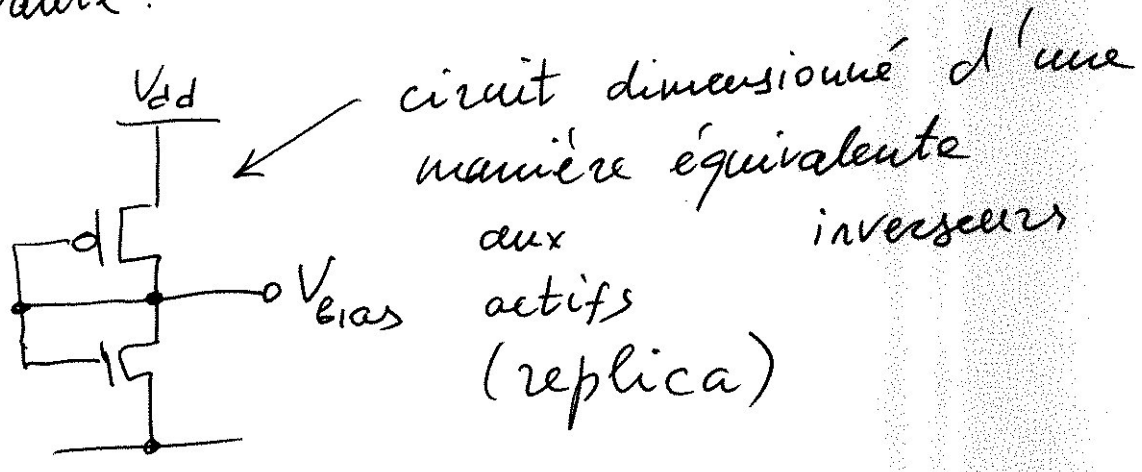 Vdd
circuit dimensionné d'une
manière équivalente
aux inverseurs
Vbias actifs
(replica)